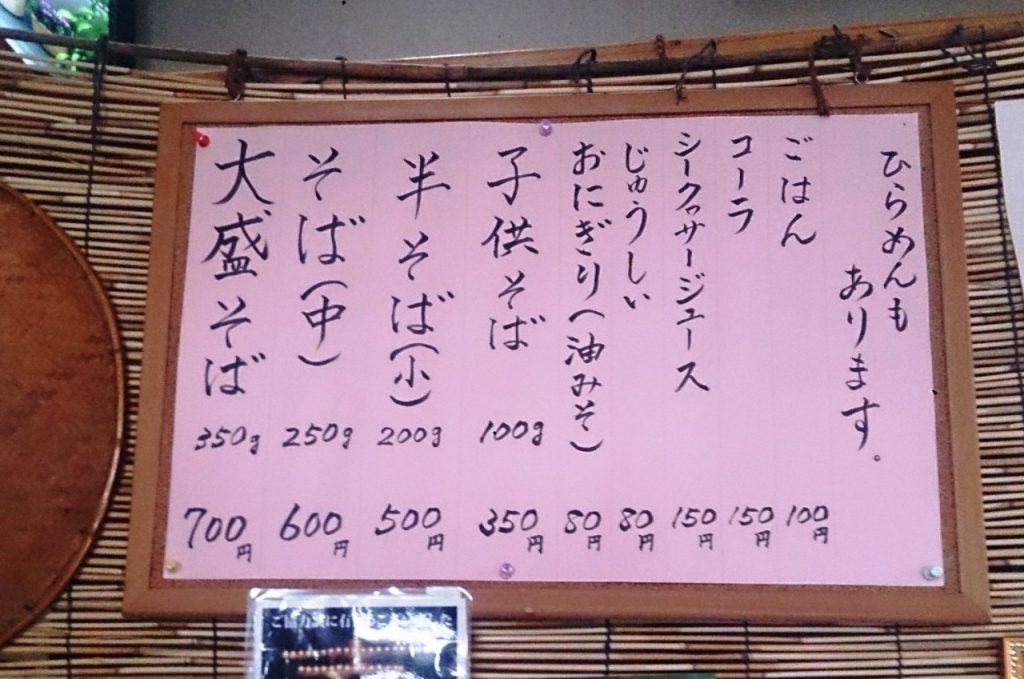 ひらめんも
あります。
ごはん 100円
コーラ 150円
シークヮサージュース 150円
じゅうしい 80円
おにぎり(油みそ) 80円
子供そば 100g 350円
半そば(小) 200g 500円
そば(中) 250g 600円
大盛そば 350g 700円